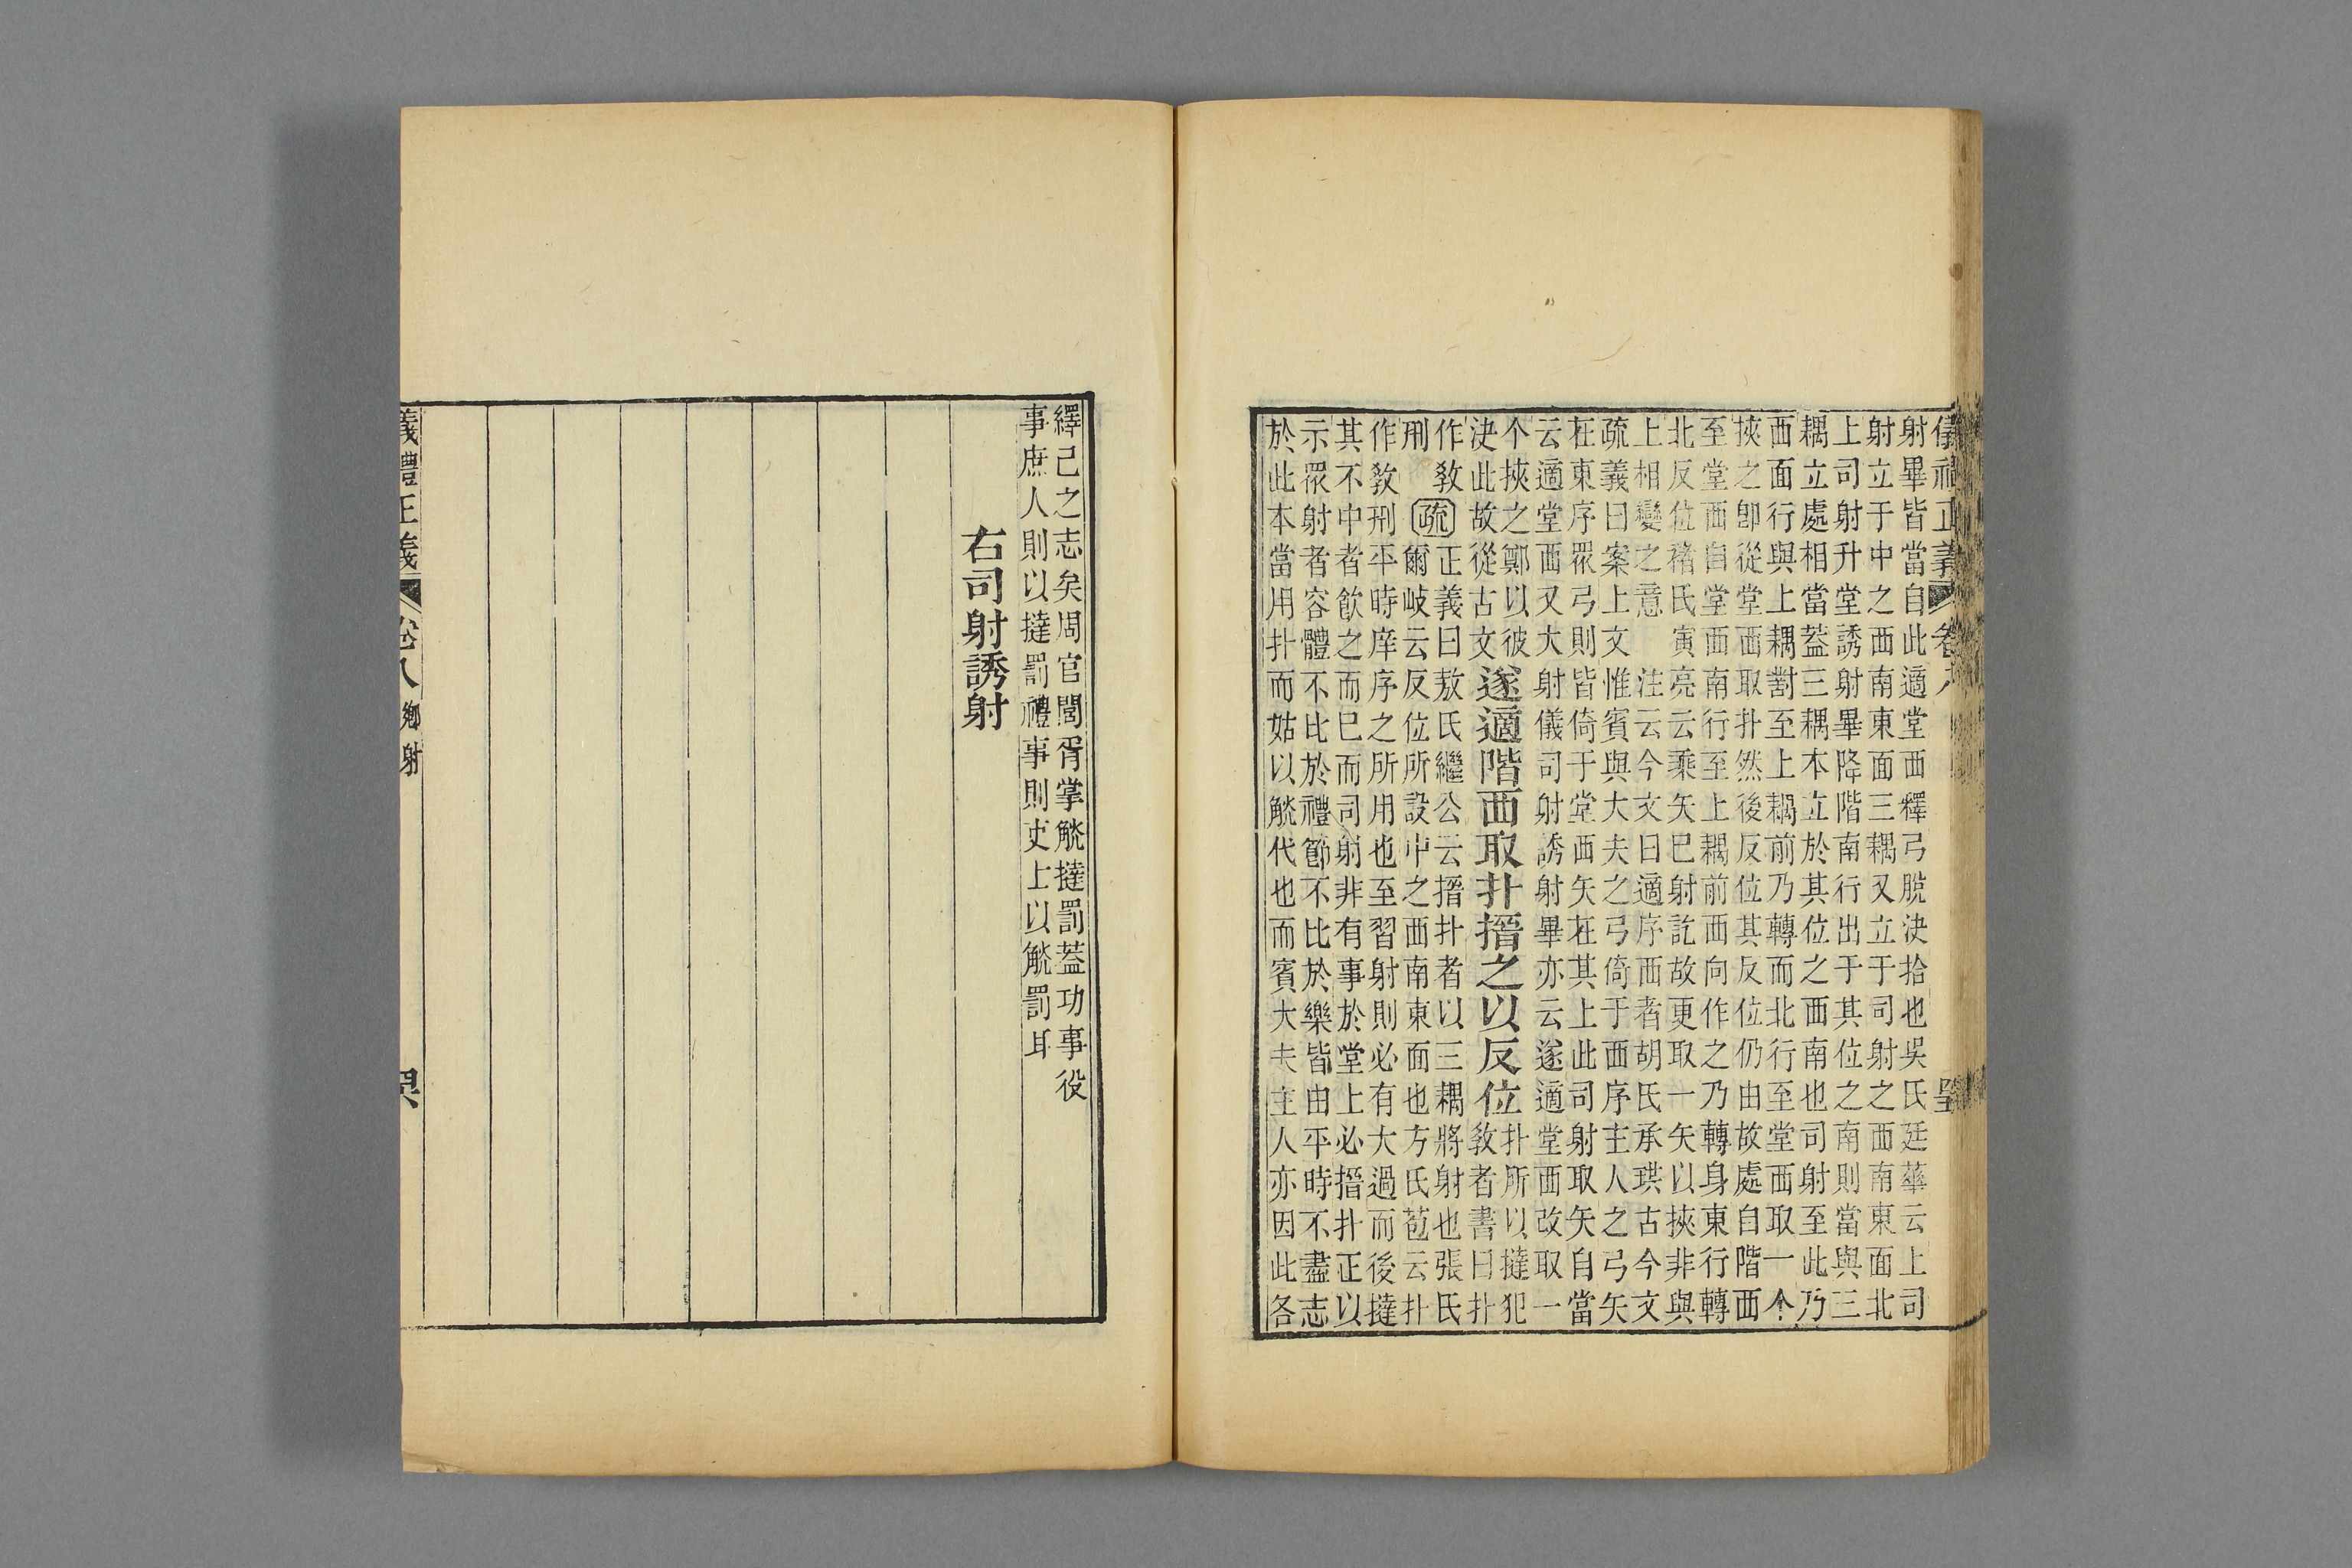 儀禮正義 卷八
射畢皆當自此適堂西釋弓脫決拾也吳氏廷華云上司
射立于中之西南東面三耦又立于司射之西南東面北
上司射升堂誘射畢降階南行出于其位之南則當與三
耦立處相當葢三耦本立於其位之西南也司射至此乃
西面行與上耦對至上耦前乃轉而北行至堂西取一个
挾之卽從堂西取扑然後反位其反位仍由故處自階西
至堂西自堂西南行至上耦前西向作之乃轉身東行轉
北反位褚氏寅亮云乘矢巳射訖故更取一矢以挾非與
上相變之意 注云今文曰適序西者胡氏承珙古今文
疏義曰案上文惟賓與大夫之弓倚于西序主人之弓矢
在東序眾弓則皆倚于堂西矢在其上此司射取矢自當
云適堂西又大射儀司射誘射畢亦云遂適堂西改取一
个挾之鄭以彼
決此故從古文
遂適階西取扑搢之以反位
扑所以撻犯
敎者書曰扑
作敎
刑
疏
正義曰敖氏繼公云搢扑者以三耦將射也張氏
爾岐云反位所設中之西南東面也方氏苞云扑
作敎刑平時庠序之所用也至習射則必有大過而後撻
其不中者飮之而巳而司射非有事於堂上必搢扑正以
示眾射者容體不比於禮節不比於樂皆由平時不盡志
於此本當用扑而姑以觥代也而賓大夫主人亦因此各
繹己之志矣周官閭胥掌觥撻罰葢功事役
事庶人則以撻罰禮事則吏上以觥罰耳
右司射誘射
義禮正義 卷八 鄉射